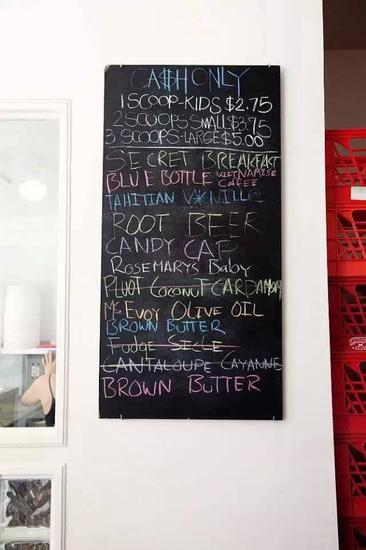 CA$H ONLY
1 SCOOP-KIDS $2.75
2 SCOOPS SMALL $3.75
3 SCOOPS-LARGE $5.00
SECRET BREAKFAST
BLUE BOTTLE VIETNAMESE COFFEE
TAHITIAN VANILLA
ROOT BEER
CANDY CAP
ROSEMARYS BABY
PLUOT COCONUT CARDAMOM
McEVOY OLIVE OIL
BROWN BUTTER
FUDGE SICLE
CANTALOUPE CAYANNE
BROWN BUTTER